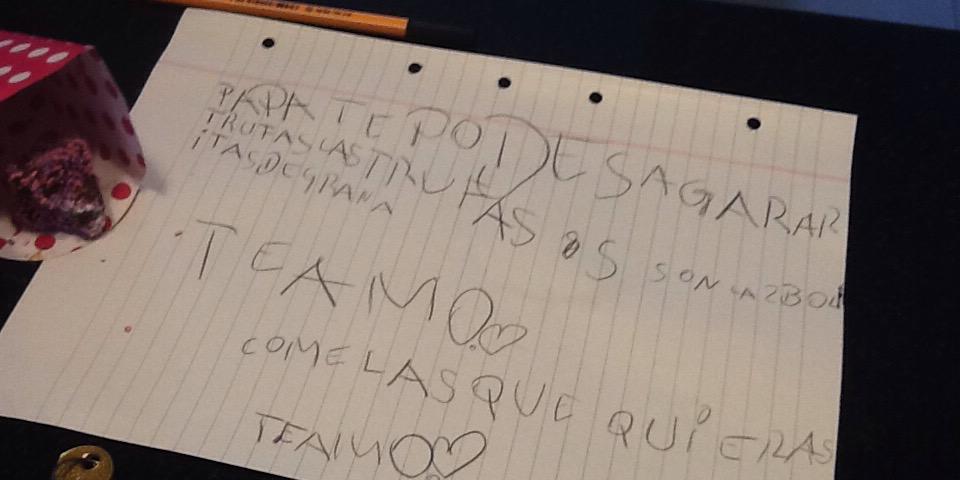 PAPA TE PODES AGARAR
TRUFAS LAS TRUFAS SON LAZ BOL
ITAS DE GRANA
TE AMO.♡
COME LAS QUE QUIERAS
TE AMO.♡